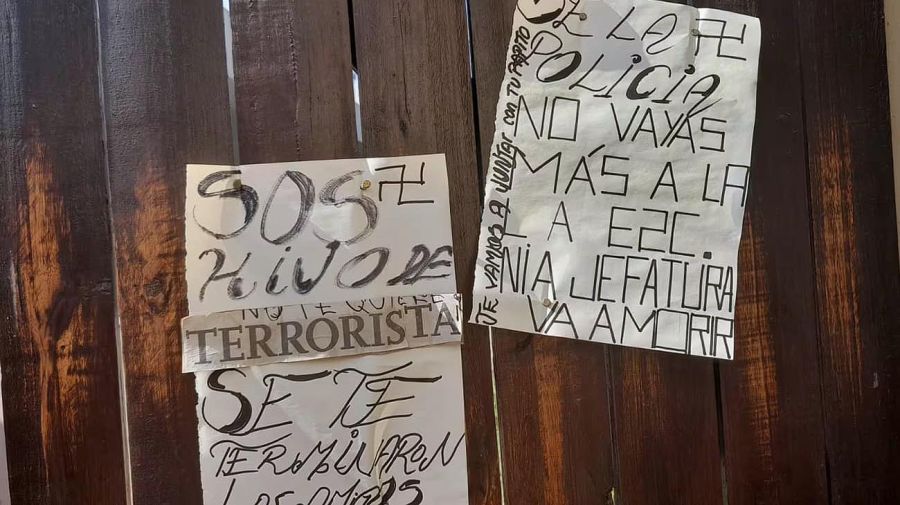 SOS
HIJO DE
NO TE QUIERE
TERRORISTA
SE TE
TERMINARON
LOS AMIGOS
DE LA
POLICIA
NO VAYAS
MÁS A LA
E2C.
NIA JEFATURA
VA A MORIR
VAMOS A JUNTAR CON TU PAPITO